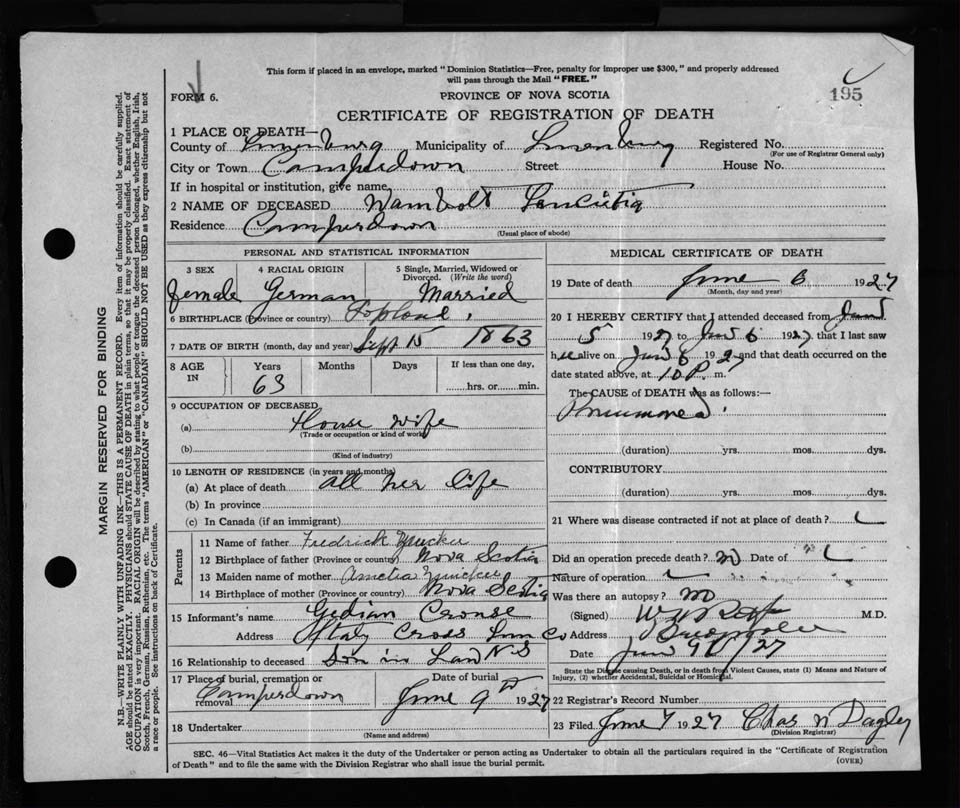 This form if placed in an envelope, marked "Dominion Statistics—Free, penalty for improper use $300," and properly addressed
will pass through the Mail "FREE."
195
FORM 6.
PROVINCE OF NOVA SCOTIA
CERTIFICATE OF REGISTRATION OF DEATH
1 PLACE OF DEATH—
County of Lunenburg Municipality of Lunenburg Registered No.
(For use of Registrar General only)
City or Town Camperdown Street House No.
If in hospital or institution, give name
2 NAME OF DECEASED Wambolt
Residence Camperdown
(Usual place of abode)
PERSONAL AND STATISTICAL INFORMATION
3 SEX 4 RACIAL ORIGIN 5 Single, Married, Widowed or
Divorced. (Write the word)
female German Married
6 BIRTHPLACE (Province or country)
7 DATE OF BIRTH (month, day and year) Sept 15 1863
8 AGE IN Years Months Days If less than one day,
63 hrs. or min.
9 OCCUPATION OF DECEASED
(a) House wife
(Trade or occupation or kind of work)
(b)
(Kind of industry)
10 LENGTH OF RESIDENCE (in years and months)
(a) At place of death all her life
(b) In province
(c) In Canada (if an immigrant)
Parents
11 Name of father Fedrick
12 Birthplace of father (Province or country) Nova Scotia
13 Maiden name of mother Amelia
14 Birthplace of mother (Province or country) Nova Scotia
15 Informant's name Gedian Crouse
Address Cross Lun Co
16 Relationship to deceased Son in Law N S
17 Place of burial, cremation or removal Camperdown
Date of burial June 9th 1927
18 Undertaker
(Name and address)
MEDICAL CERTIFICATE OF DEATH
19 Date of death June 6 1927
(Month, day and year)
20 I HEREBY CERTIFY that I attended deceased from June
5 1927 to June 6 1927, that I last saw
her alive on June 6 1927 and that death occurred on
date stated above, at 10 P. m.
The CAUSE of DEATH was as follows:—
(duration) yrs. mos. dys.
CONTRIBUTORY
(duration) yrs. mos. dys.
21 Where was disease contracted if not at place of death?
Did an operation precede death? no Date of
Nature of operation
Was there an autopsy? no
(Signed) M.D.
Address
Date June 9th/27
State the Disease causing Death, or in death from Violent Causes, state (1) Means and Nature of
Injury, (2) whether Accidental, Suicidal or Homicidal.
22 Registrar's Record Number
23 Filed June 7 1927 Chas N Dagley
(Division Registrar)
SEC. 46—Vital Statistics Act makes it the duty of the Undertaker or person acting as Undertaker to obtain all the particulars required in the "Certificate of Registration
of Death" and to file the same with the Division Registrar who shall issue the burial permit.
(OVER)
MARGIN RESERVED FOR BINDING
N.B.—WRITE PLAINLY WITH UNFADING INK—THIS IS A PERMANENT RECORD. Every item of information should be carefully supplied.
AGE should be stated EXACTLY. PHYSICIANS should STATE CAUSE OF DEATH in plain terms, so that it may be properly classified. Exact statement of
OCCUPATION is very important. RACIAL ORIGIN will be described by stating to what people or tongue the deceased person belonged, whether English, Irish,
Scotch, French, German, Russian, Ruthenian, etc. The terms "AMERICAN" or "CANADIAN" SHOULD NOT BE USED as they express citizenship but not
a race or people. See instructions on back of Certificate.